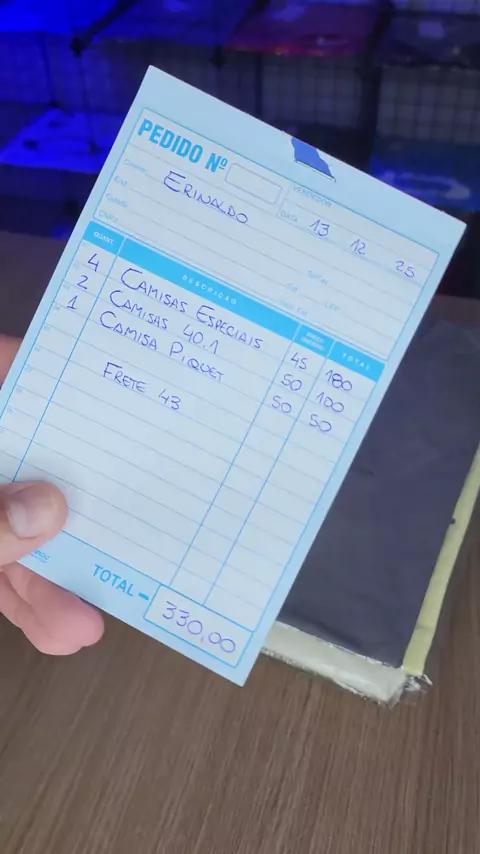 PEDIDO Nº
VENDEDOR
DATA 13 12 25
ERINALDO
End.
Cidade
QUANT. DESCRIÇÃO PREÇO UNITÁRIO TOTAL
4 CAMISAS ESPECIAIS 45 180
2 CAMISAS 40.1 50 100
1 CAMISA PIQUET 50 50
FRETE 43
TOTAL 330,00